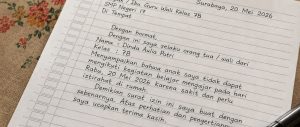 Surabaya, 20 Mei 2026
/ Ibu Guru Wali Kelas 7B
SMP Negeri 17
Di Tempat
Dengan hormat,
Dengan ini saya selaku orang tua / wali dari
Nama : Dinda Aulia Putri
Kelas : 7B
Menyampaikan bahwa anak saya tidak dapat
mengikuti kegiatan belajar mengajar pada hari
Rabu, 20 Mei 2026 karena sakit dan perlu
istirahat di rumah.
Demikian surat izin ini saya buat dengan
sebenarnya. Atas perhatian dan pengertiannya
saya ucapkan terima kasih.